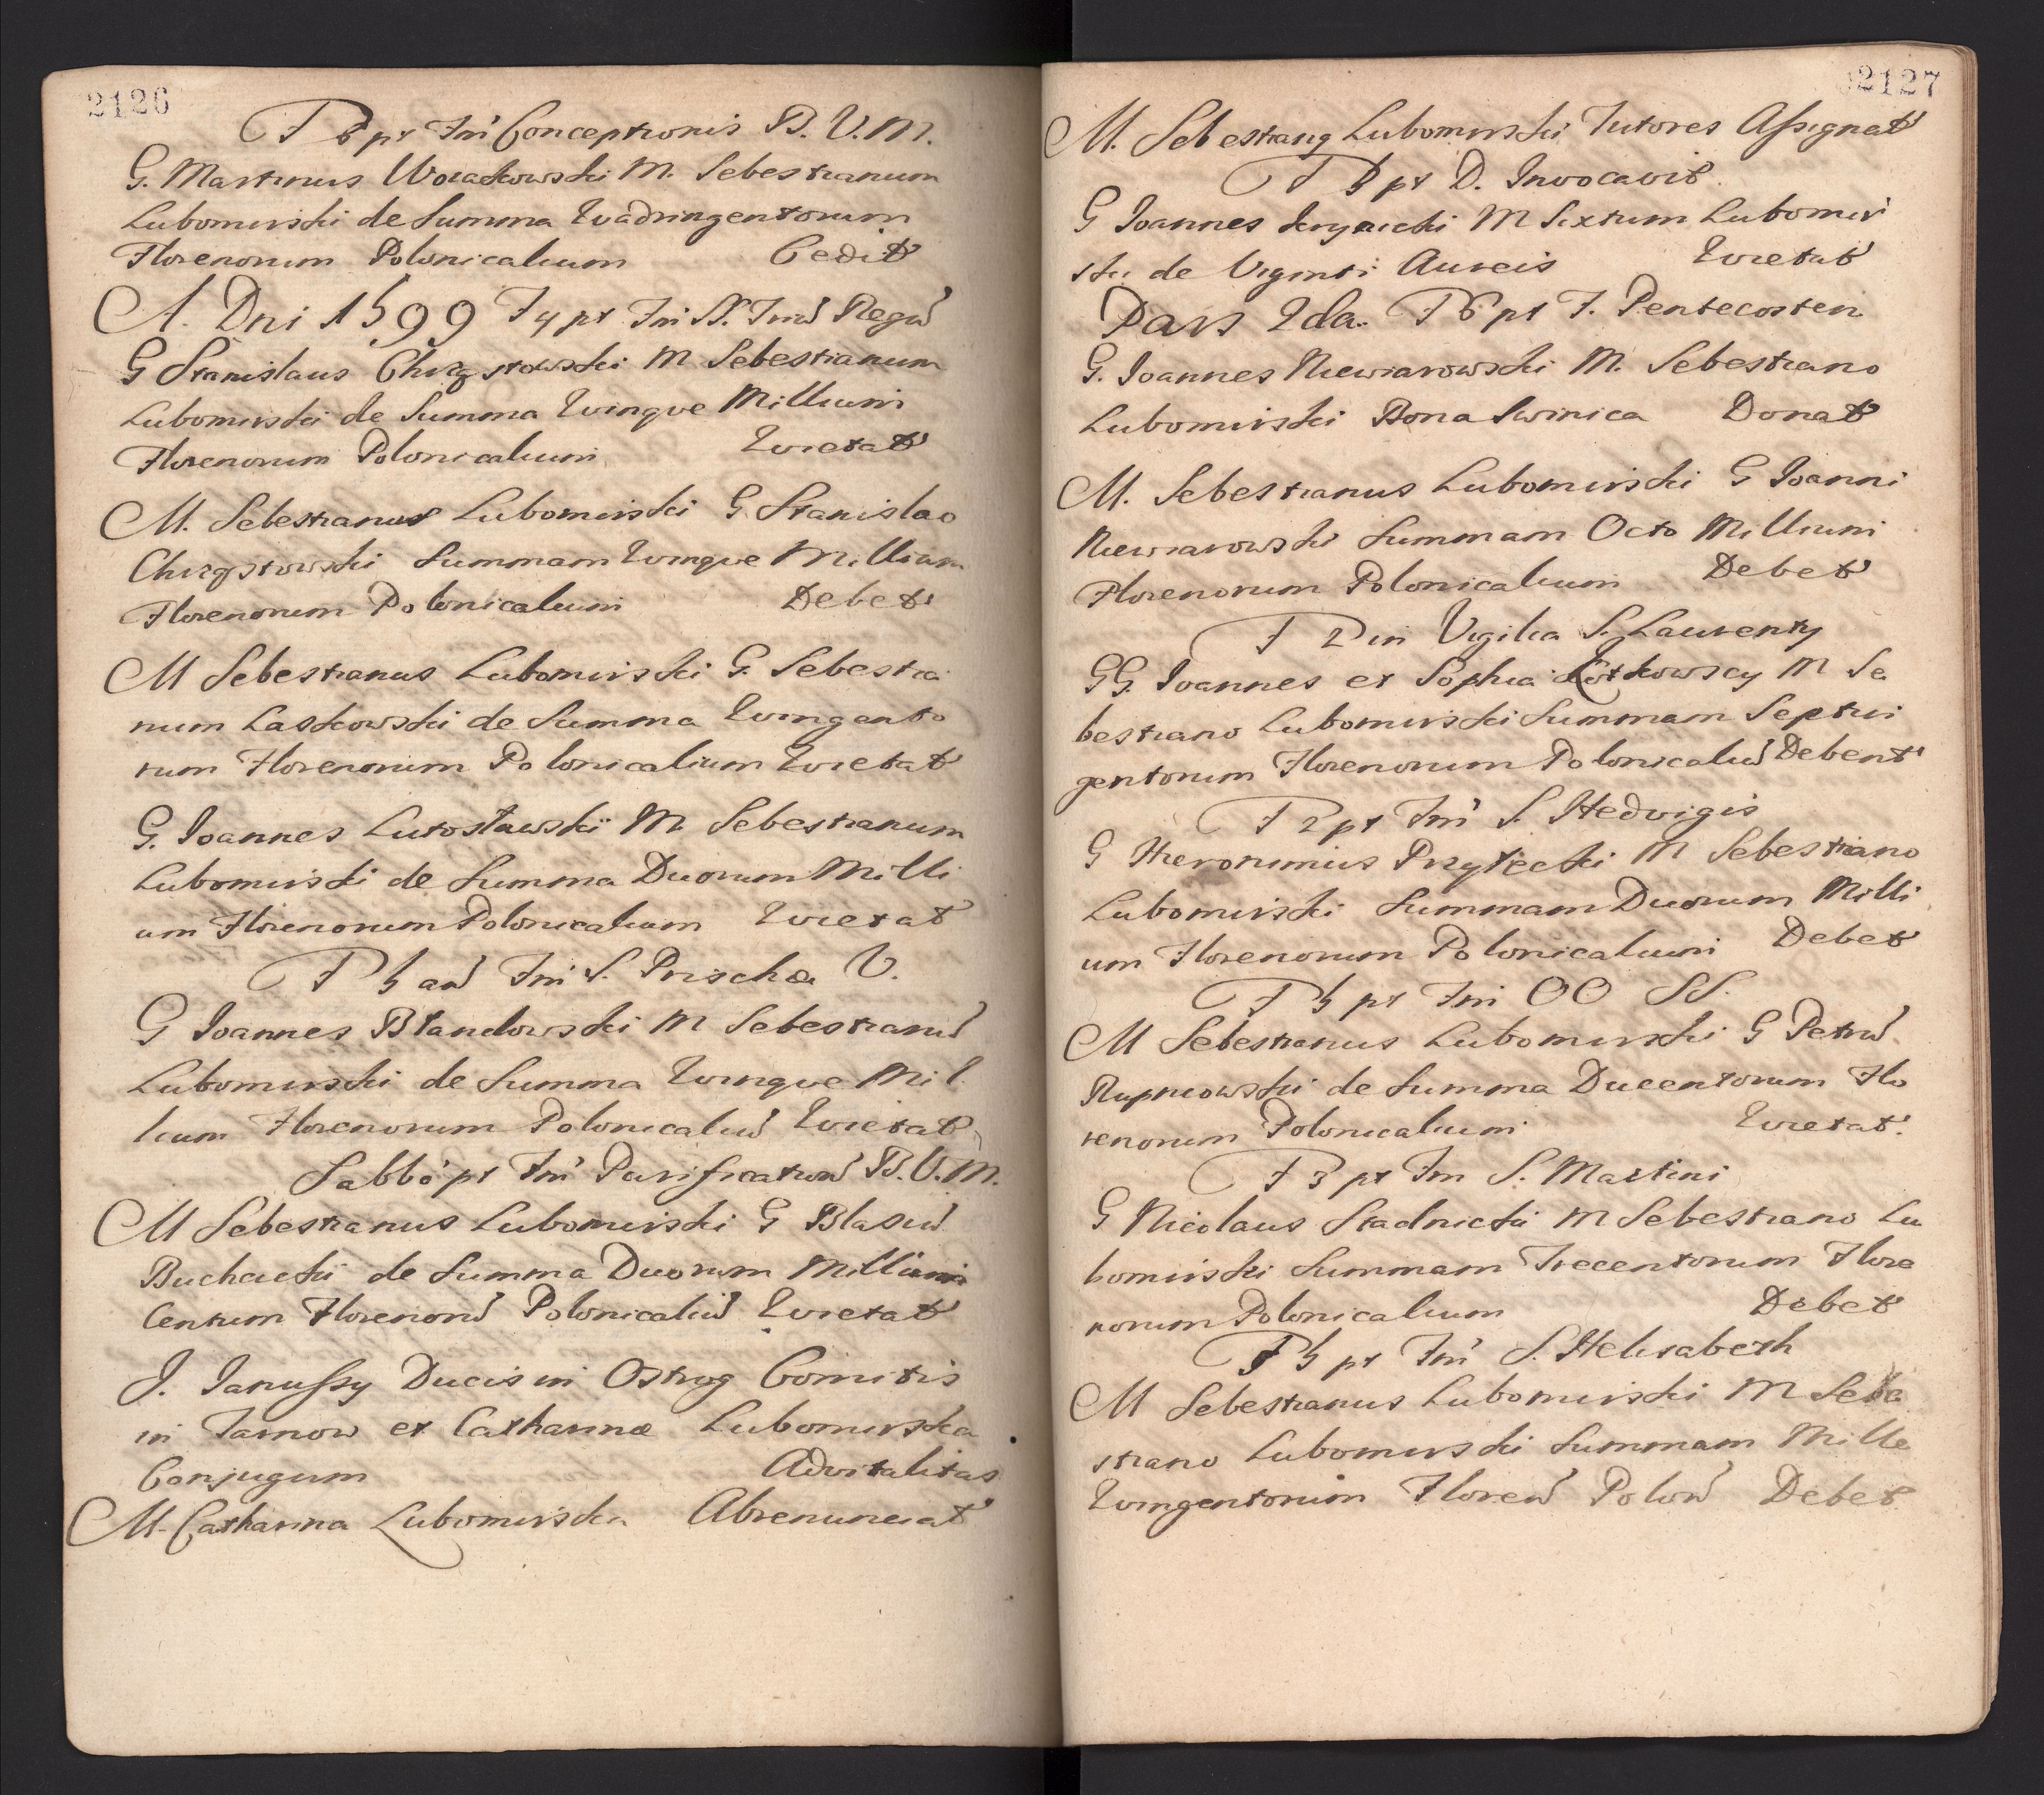 2126
F 6 pt Fm Conceptionis B. V. M.
G. Martinus Worackowski M. Sebestianum
Lubomirski de Summa Quadringentorum
Florenorum Polonicalium Cedit
A. Dni 1599 F 4 pt Fm SS. Triũ Regũ
G Stanislaus Chrząstowski M Sebestianum
Lubomirski de Summa Quinque Millium
Florenorum Polonicalium Quietat
M. Sebestianus Lubomirski G. Stanislao
Chrząstowski Summam Quinque Millium
Florenorum Polonicalium Debet
M Sebestianus Lubomirski G. Sebestia
num Laskowski de Summa Quingento
rum Florenorum Polonicalium Quietat
G. Joannes Lutosławski M Sebestianum
Lubomirski de Summa Duorum Milli
um Florenorum Polonicalium Quietat
F 5 an Fm S. Priscæ V.
G Joannes Błandowski M Sebestianũ
Lubomirski de Summa Quinque Mil
lium Florenorum Polonicaliũ Quietat
Sabbo pt Fm Purificationi B. V. M.
M Sebestianus Lubomirski G Blasiũ
Buchacki de Summa Duorum Millium
Centum Florenorũ Polonicaliũ Quietat
J. Janussy Ducis in Ostrog Comitis
in Tarnow et Catharinæ Lubomirska
Conjugum Advitalitas
M. Catharina Lubomirska Abrenunciat
2127
M. Sebestiang Lubomirski Tutores Assignat
F 5 pt D. Invocavit
G Joannes Krynicki M Sixtum Lubomir
ski de Viginti Aureis Quietat
Pars 2da. F 6 pt F. Pentecosten
G. Joannes Niewiarowski M. Sebestiano
Lubomirski Bona Swinica Donat
M. Sebestianus Lubomirski G Joanni
Niewiarowski Summam Octo Millium
Florenorum Polonicalium Debet
F 2 in Vigilia S. Laurenty
GG. Joannes et Sophia Lotkowscy M Se
bestiano Lubomirski Summam Septin
gentorum Florenorum Polonicaliũ Debent
F 2 pt Fm S. Hedvigis
G Hieronimius Przyłecki M Sebestiano
Lubomirski Summam Duorum Milli
um Florenorum Polonicalium Debet
F 5 pt Fm OO SS.
M Sebestianus Lubomirski G Petrũ
Rupniowski de Summa Ducentorum Flo
renorum Polonicalium Quietat.
F 3 pt Fm S. Martini
G Nicolaus Stadnicki M Sebestiano Lu
bomirski Summam Trecentorum Flore
norum Polonicalium Debet
F 5 pt Fm S. Helisabeth
M Sebestianus Lubomirski M Seba
stiano Lubomirski Summam Mille
Quingentorum Florenũ Polonũ Debet